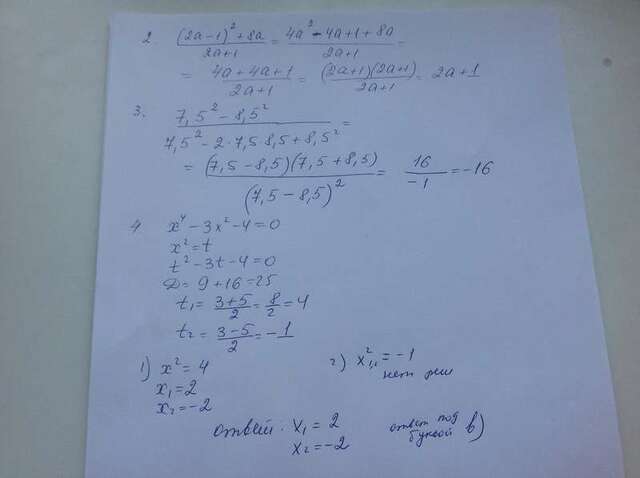 2. (2a-1)²+8a / 2a+1 = 4a²-4a+1+8a / 2a+1 =
= 4a+4a+1 / 2a+1 = (2a+1)(2a+1) / 2a+1 = 2a+1
3. 7,5²-8,5² / 7,5²-2·7,5 8,5+8,5² =
= (7,5-8,5)(7,5+8,5) / (7,5-8,5)² = 16 / -1 = -16
4. x⁴-3x²-4=0
x²=t
t²-3t-4=0
D=9+16=25
t₁= 3+5 / 2 = 8 / 2 = 4
t₂= 3-5 / 2 = -1
1) x²=4 2) x²₁,₁=-1
x₁=2 нет реш
x₂=-2
ответ: x₁=2 ответ под
x₂=-2 буквой в)